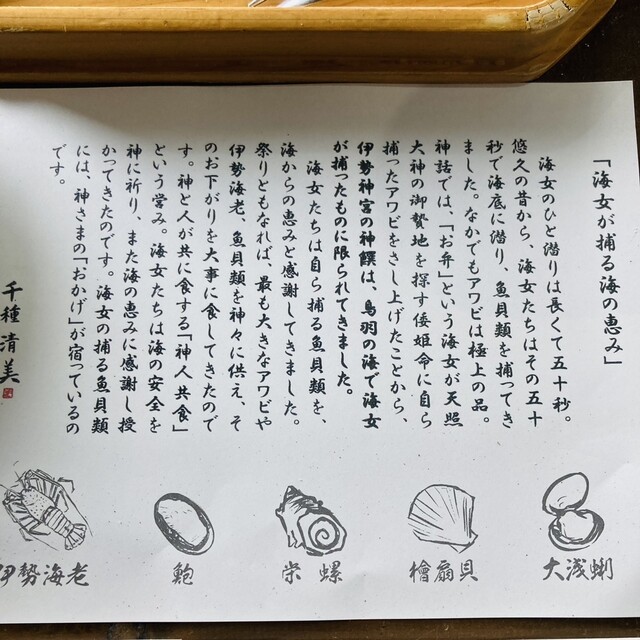 「海女が捕る海の恵み」
海女のひと潜りは長くて五十秒。
悠久の昔から、海女たちはその五十
秒で海底に潜り、魚貝類を捕ってき
ました。なかでもアワビは極上の品。
神話では、「お弁」という海女が天照
大神の御贄地を探す倭姫命に自ら
捕ったアワビをさし上げたことから、
伊勢神宮の神饌は、鳥羽の海で海女
が捕ったものに限られてきました。
海女たちは自ら捕る魚貝類を、
海からの恵みと感謝してきました。
祭りともなれば、最も大きなアワビや
伊勢海老、魚貝類を神々に供え、そ
のお下がりを大事に食してきたので
す。神と人が共に食する「神人共食」
という営み。海女たちは海の安全を
神に祈り、また海の恵みに感謝し授
かってきたのです。海女の捕る魚貝類
には、神さまの「おかげ」が宿っているの
です。
千種清美
伊勢海老
鮑
栄螺
檜扇貝
大浅蜊